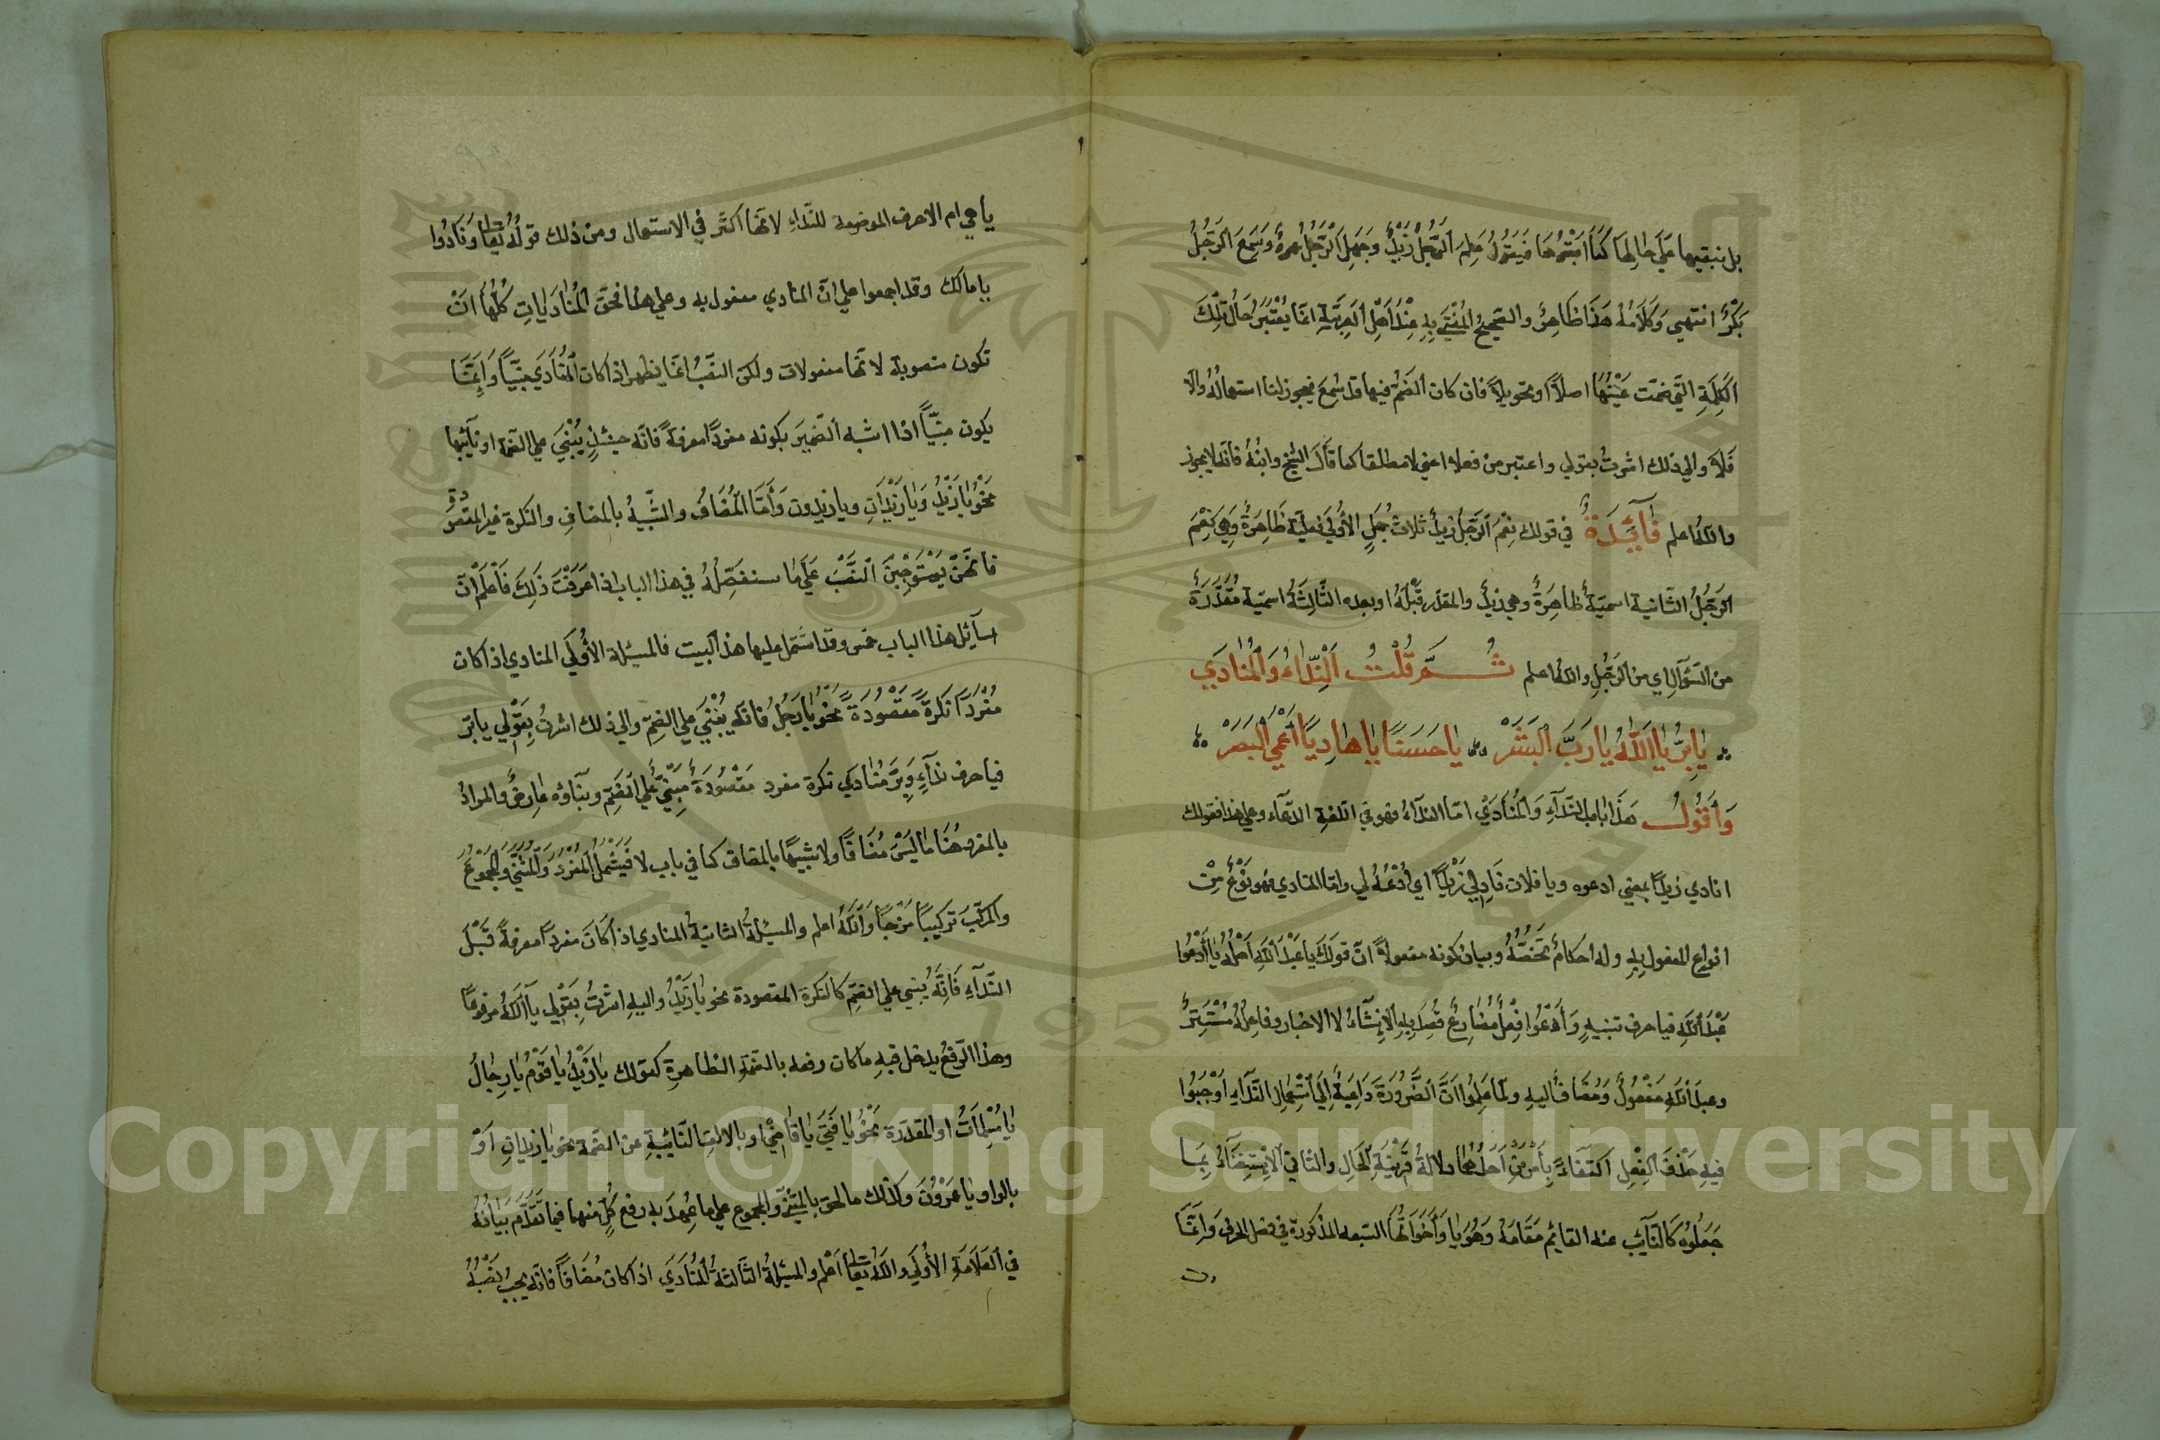 بل نبقيها على حالها كما ابتها فيقول علم الرجل زيد وجهل الرجل عمرو وسمع الرجل
بكر انتهى وكلامه هذا ظاهر والصحيح المفتى به عند اهل العربية انما يعتبر حال تلك
الكلمة التي ضمت عينها اصلا او تحويلا فان كان الضم فيها قد سمع فيجوز لنا استعماله والا
فلا والى ذلك اشرت بقولي واعتبر من فعلا اعني لا مطلقا كما قال الشيخ وابنه فانه لا يجوز
والله اعلم فآئدة في قولك نعم الرجل زيد ثلاث جمل الأولى فعلية ظاهرة وهي نعم
الرجل الثانية اسمية ظاهرة وهي زيد والمقدر قبله او بعده الثالثة اسمية مقدرة
من السؤال اي من الرجل والله اعلم ثم قلت النداء والمنادي
يا بر يا الله يا رب البشر يا حسنا يا هاديا اعمى البصر
واقول هذا باب النداء والمنادي اما النداء فهو في اللغة الدعاء وعلى هذا فقولك
انادي زيدا بمعنى ادعوه ويا فلان ناد لي زيدا اي ادعه لي واما المنادي فهو نوع من
انواع المفعول به وله احكام تخصه وبيان كونه مفعولا ان قولك يا عبد الله اصله يا ادعوا
عبد الله فيا حرف تنبيه وادعوا فعل مضارع قصد به الانشاء لا الاخبار وفاعله مستتر
وعبد الله مفعول ومضاف اليه ولما علموا ان الضرورة داعية الى استعمال النداء اوجبوا
فيه حذف الفعل اكتفاء بامرين احدهما دلالة قرينة الحال والثاني الاستغناء بما
جعلوه كالنائب عنه القايم مقامه وهو يا واخواتها السبعه المذكورة في فصل الحرف وانما
يا هي ام الاحرف الموضوعة للنداء لانها اكثر في الاستعمال ومن ذلك قوله تعالى ونادوا
يا مالك وقد اجمعوا على ان المنادي مفعول به وعلى هذا فحق المناديات كلها ان
تكون منصوبة لانها مفعولات ولكن النصب انما يظهر اذا كان المنادي مبنيا وانما
يكون مبنيا اذا اشبه الضمير بكونه مفردا معرفة فانه حينئذ يبنى على الضمة او نآئبها
نحو يا زيد ويا زيدان ويا زيدون واما المضاف والشبيه بالمضاف والنكرة غير المقصودة
فانهن يستوجبن النصب على ما سنفصله في هذا الباب اذا عرفت ذلك فاعلم ان
مسآئل هذا الباب خمس وقد اشتمل عليها هذا البيت فالمسئلة الأولى المنادي اذا كان
مفردا نكرة مقصودة نحو يا رجل فانه يبنى على الضم والى ذلك اشرت بقولي يا بر
فيا حرف ندآء وبر منادى نكرة مفرد مقصودة مبني على الضم وبنآؤه عارض والمراد
بالمفرد هنا ما ليس مضافا ولا شبيها بالمضاف كما في باب لا فيشمل المفرد والمثنى والمجموع
والمركب تركيبا مزجا والله اعلم والمسئلة الثانية المنادي اذا كان مفردا معرفة قبل
الندآء فانه يبنى على الضم كالنكرة المقصودة نحو يا زيد واليه اشرت بقولي يآ الله مرفوعا
وهذا الرفع يدخل فيه ما كان رفعه بالضمة الظاهرة كقولك يا زيد يا قوم يا رجال
يا مسلمات او المقدرة نحو يا فتى يا قاضي او بالالف النائبة عن الضمة نحو يا زيدان او
بالواو يا عمرون وكذلك ما لحق بالمثنى والمجموع على ما عهد به رفع كل منهما فيما تقدم بيانه
في العلامة الأولى والله تعالى اعلم والمسئلة الثالثة المنادي اذا كان مضافا فانه يجب نصبه
Copyright © King Saud University